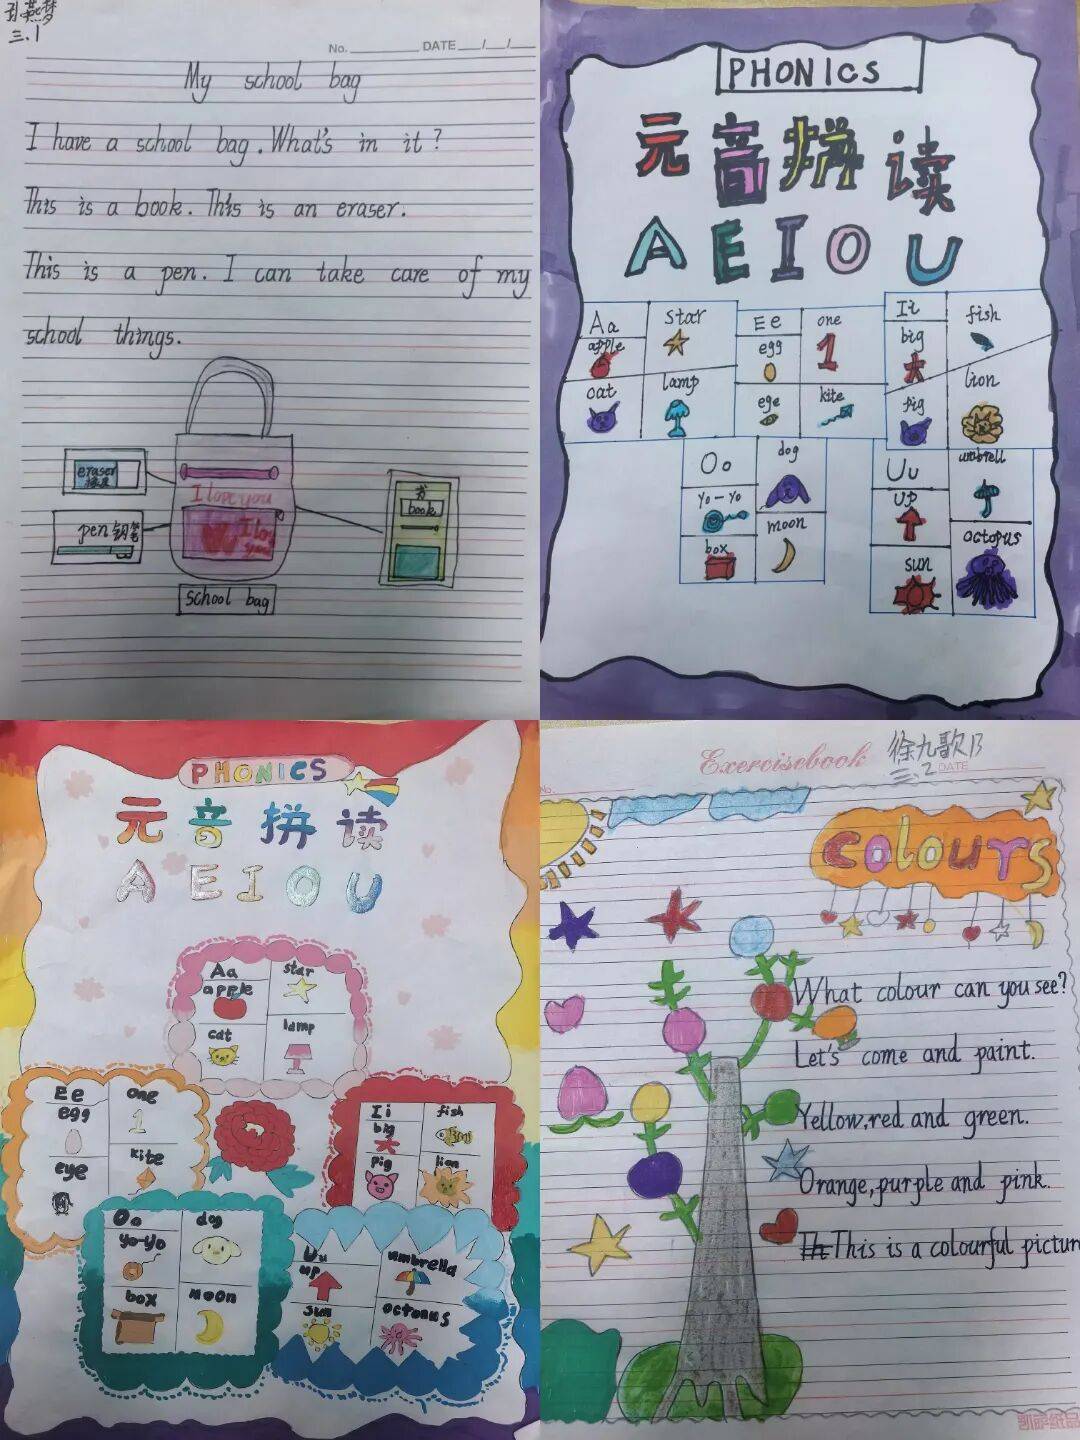 孙燕梦
三.1
No. DATE / /
My school bag
I have a school bag. What's in it?
This is a book. This is an eraser.
This is a pen. I can take care of my
school things.
eraser
橡皮
pen 钢笔
I love you
I love you
书
book
school bag
PHONICS
元音拼读
A E I O U
Aa
apple
star
cat
lamp
Ee
egg
one
eye
kite
Ii
big
fish
pig
lion
Oo
yo-yo
dog
box
moon
Uu
up
umbrell
sun
octopus
PHONICS
元音拼读
A E I O U
Aa
apple
star
cat
lamp
Ee
egg
one
eye
kite
Ii
big
fish
pig
lion
Oo
yo-yo
dog
box
moon
Uu
up
umbrella
sun
octopus
Exercisebook
徐九歌13
三.2
No. DATE
colours
What colour can you see?
Let's come and paint.
Yellow,red and green.
Orange,purple and pink.
This is a colourful pictur